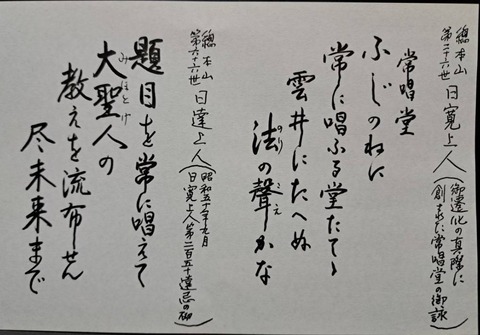 總本山
第二十六世 日寛上人（御遷化の真際に
創された常唱堂の御詠）
常唱堂
ふじのねに
常に唱ふる堂たてゝ
雲井にたへぬ
法(のり)の聲(こえ)かな
總本山
第六十六世 日達上人（昭和五十年九月
日寛上人第二百五十遠忌の砌）
題目を常に唱えて
大聖人(みほとけ)の
教えを流布せん
尽未来まで